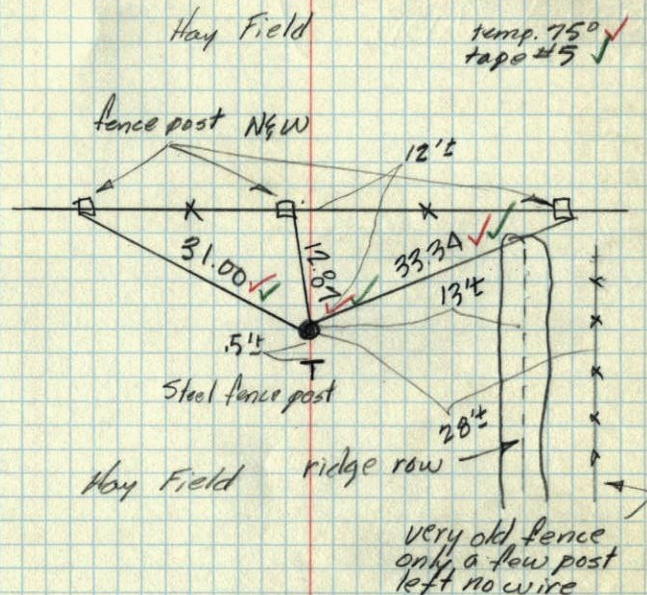 Hay Field
temp. 75°
tape #5
fence post N&W
12'±
31.00
12.87
33.34
13'±
.5'±
T
Steel fence post
28'±
ridge row
Hay Field
very old fence
only a few post
left no wire